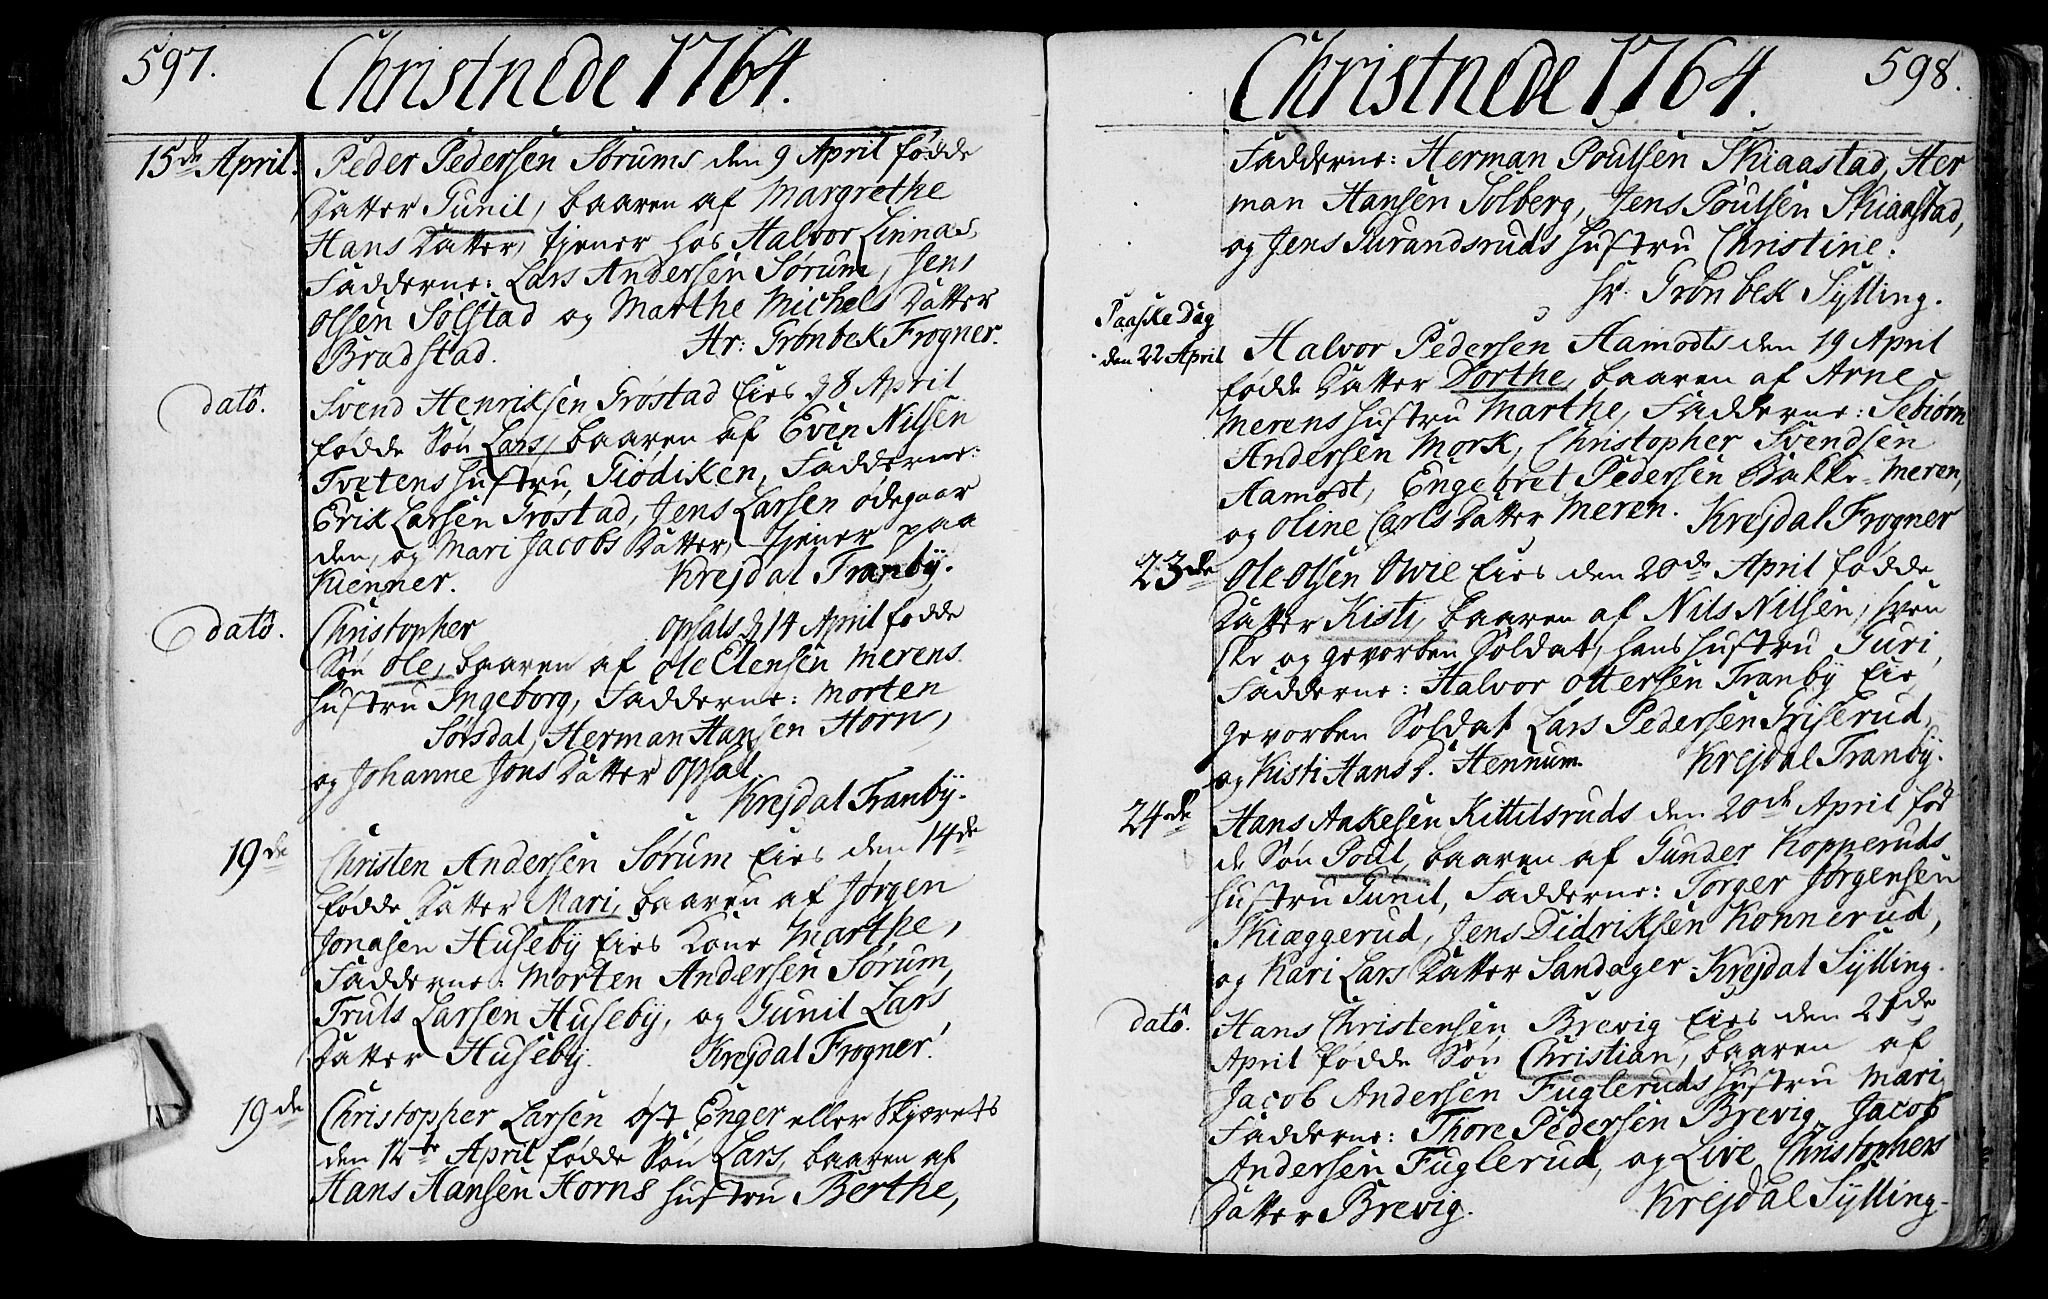 597.
Christnede 1764.
15de April. Peder Pedersen Sørums den 9 April fødde
Datter Gunil, baaren af Margrethe
Hans Datter, tjener hos Halvor Linnæs,
Fadderne: Lars Andersen Sørum, Jens
Olsen Solstad og Marthe Michels Datter
Bradstad. Hr: Grønbek Frogner.
dato. Svend Henriksen Grøstad Eies d 8 April
fødde Søn Lars, baaren af Even Nilsen
Tvetens Hustru Giødiken, Fadderne:
Erik Larsen Grøstad, Jens Larsen Ødegaar
den, og Mari Jacobs Datter, tjener paa
Kienner. Krejdal Tranby.
dato. Christopher Opsals d 14 April fødde
Søn Ole, baaren af Ole Elensen Merens
Hustru Ingeborg, Fadderne: Morten
Sørsdal, Herman Hansen Horn,
og Johanne Jons Datter Opsal.
Krejdal Tranby.
19de Christen Andersen Sørum Eies den 14de
fødde Datter Mari, baaren af Jørgen
Jonasen Huseby Eies Kone Marthe,
Fadderne: Morten Andersen Sørum,
Truls Larsen Huseby, og Gunil Lars
Datter Huseby. Krejdal Frogner.
19de Christopher Larsen Øst Enger eller Skjærets
den 12te April fødde Søn Lars, baaren af
Hans Hansen Horns Hustru Berthe,
598.
Christnede 1764.
Fadderne: Herman Poulsen Skiaastad, Her
man Hansen Solberg, Jens Poulsen Skiaastad,
og Jens Gurandsruds Hustru Christine.
Hr: Grønbek Sylling.
Paaske Dag
den 22 April Halvor Pedersen Aamodts den 19 April
fødde Datter Dorthe, baaren af Arne
Merens Hustru Marthe, Fadderne: Sebiørn
Andersen Mork, Christopher Svendsen
Aamodt, Engebret Pedersen Bakke-Meren,
og Oline Carls Datter Meren. Krejdal Frogner
23de Ole Olsen Owie Eies den 20de April fødde
Datter Kisti, baaren af Nils Nilsen, sven
ske og gevorben Soldat, hans Hustru Guri,
Fadderne: Halvor Ottersen Tranby Eie,
gevorben Soldat Lars Pedersen Griserud,
og Kisti Hans D. Hennum. Krejdal Tranby.
24de Hans Aakesen Kittilsruds den 20de April fød
de Søn Poul, baaren af Gunder Kopperuds
Hustru Gunil, Fadderne: Torger Jørgensen
Skiæggerud, Jens Didriksen Konnerud,
og Kari Lars Datter Sandager Krejdal Sylling.
dato. Hans Christensen Brevig Eies den 21de
April fødde Søn Christian, baaren af
Jacob Andersen Fugleruds Hustru Mari,
Fadderne: Thore Pedersen Brevig, Jacob
Andersen Fuglerud, og Live Christophers
Datter Brevig. Krejdal Sylling.